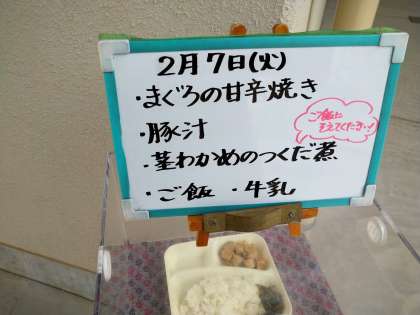 2月7日(火)
・まぐろの甘辛焼き
・豚汁
・茎わかめのつくだ煮
・ご飯 ・牛乳
ご飯に
そえてください♪